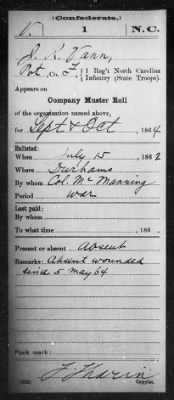 (Confederate.)
V. 1 N.C.
J. R. Vann,
Pvt., Co. F, 1 Reg't North Carolina
Infantry (State Troops).
Appears on
Company Muster Roll
of the organization named above,
for Sept & Oct, 1864
Enlisted:
When July 15, 1862
Where Durhams
By whom Col. McManning
Period war
Last paid:
By whom
To what time , 186
Present or absent Absent
Remarks: Absent wounded
since 5 May 64
Book mark:
Copyist.